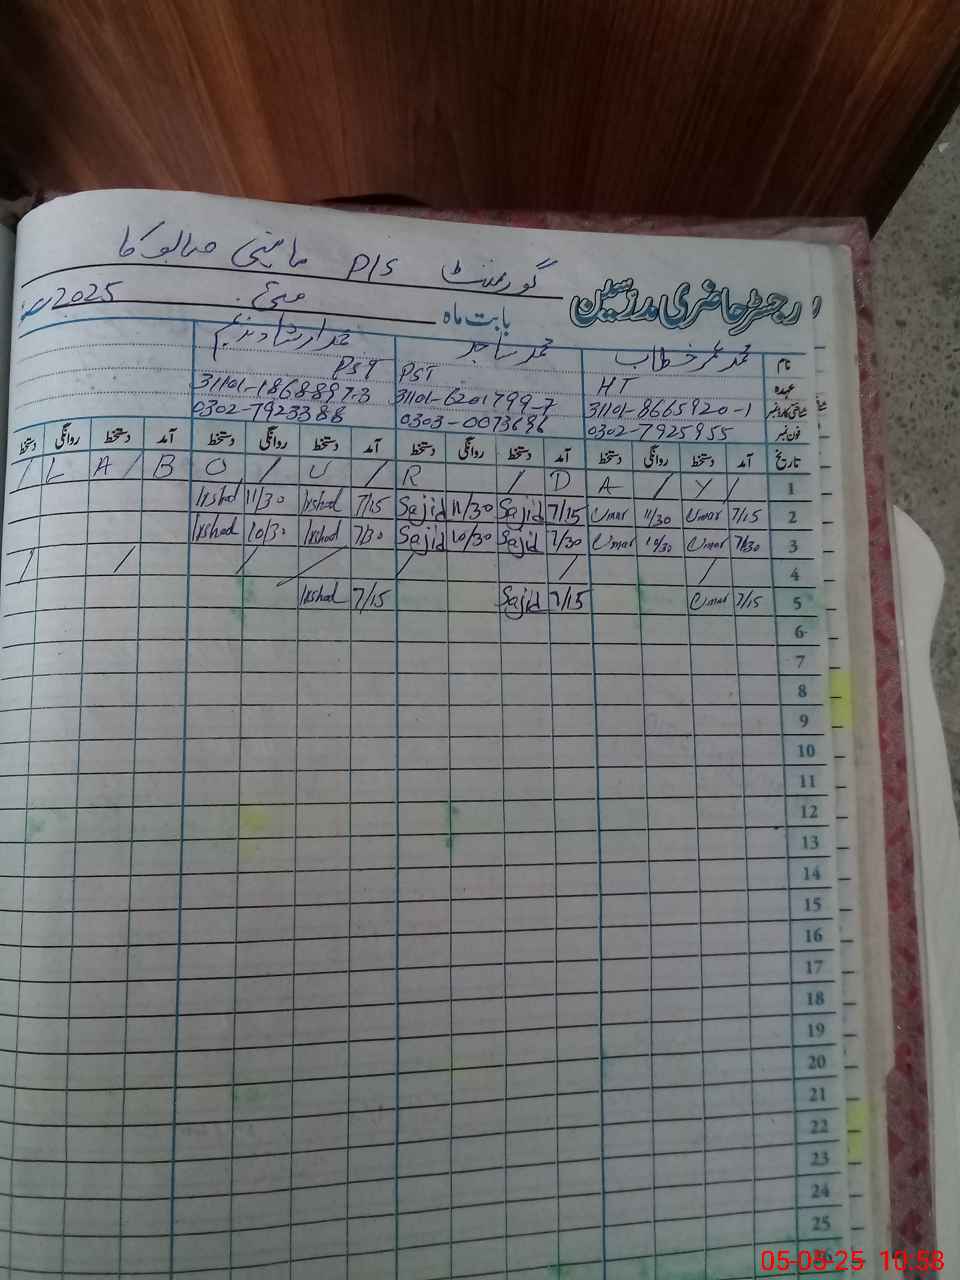 گورنمنٹ P/S مائنی مالوکا
رجسٹر حاضری مدرسین
بابت ماہ مئی 2025ء
نام محمد عمر خطاب محمد ساجد محمد ارشاد ندیم
عہدہ HT PST PST
شناختی کارڈ نمبر 31101-8665920-1 31101-6201799-7 31101-1868897-3
فون نمبر 0302-7925955 0303-0073696 0302-7923388
تاریخ آمد دستخط روانگی دستخط آمد دستخط روانگی دستخط آمد دستخط روانگی دستخط آمد دستخط روانگی دستخط
1 / Y / A D / R U / O B / A L /
2 7/15 Umar 11/30 Umar 7/15 Sajid 11/30 Sajid 7/15 Irshad 11/30 Irshad
3 7/30 Umar 10/30 Umar 7/30 Sajid 10/30 Sajid 7/30 Irshad 10/30 Irshad
4 / / / / / / /
5 7/15 Umar 7/15 Sajid 7/15 Irshad
6
7
8
9
10
11
12
13
14
15
16
17
18
19
20
21
22
23
24
25
26
05-05-25 10:58